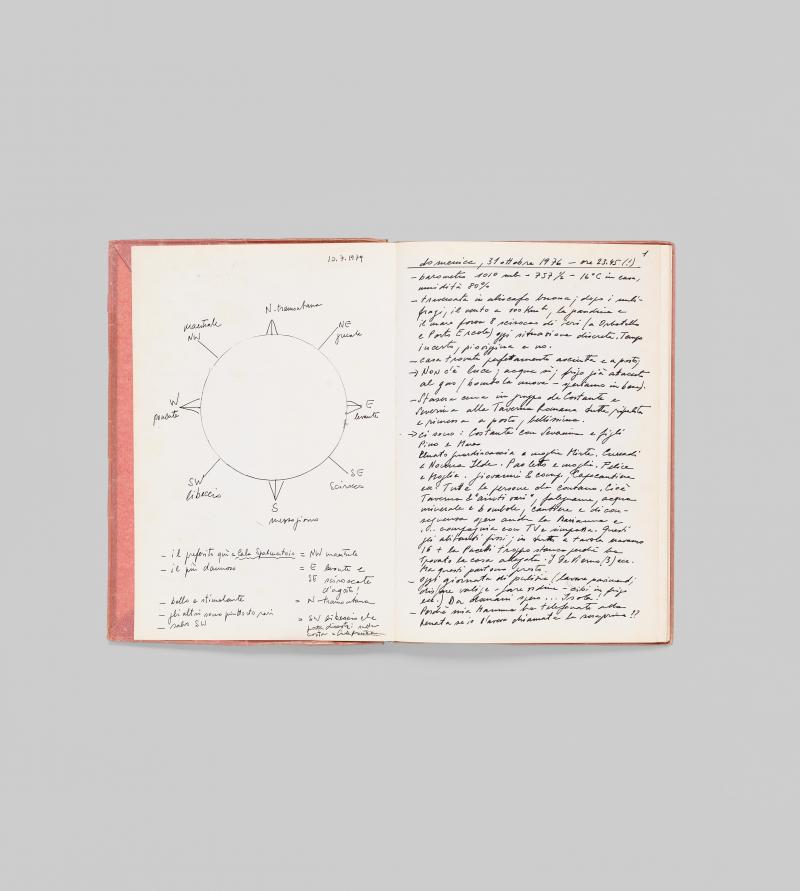 10.7.1979
N. tramontana
maestrale
NW
NE
grecale
W
ponente
E
levante
SW
libeccio
SE
scirocco
S
mezzogiorno
– il preferito qui a Cala Spalmatoio = NW maestrale
– il più dannoso = E levante e
SE scirocco
d'agosto!
– bello e stimolante = N tramontana
– gli altri sono
– salvo SW = SW libeccio che
1
domenica, 31 ottobre 1976 – ore 23.45 (!)
– barometro 1010 mb – 757 % – 16°C in casa,
umidità 80%
– traversata in aliscafo buona; dopo i
il vento a 100 Kmh, la pandina e
il mare forza 8 scirocco di ieri (a Orbetello
e Porto Ercole) oggi situazione discreta. Tempo
incerto, pioviggina e no.
– casa trovata perfettamente asciutta e a posto,
→ Non c'è luce; acqua sì; frigo già attaccato
al gas (bombola nuova – speriamo in bene).
– Stasera cena in gruppo da Costante e
Severina alla Taverna Romana tutta ripulita
e rimessa a posto, bellissima.
→ ci sono: Costante con Severina e figli
Pino e
Renato guardiacaccia e moglie
e Ilde. Paoletto e moglie. Felice
e moglie. Giovanni &
ecc. Tutte le persone che contano. Cioè
Taverna & "aiuti vari", falegname, acqua
minerale e bombole, cantiere e di con-
seguenza spero anche la Marianna e
... compagnia con TV e simpatia. Questi
gli abitanti fissi; in tutto a tavola eravamo
16 + la troppo stanca perché ha
trovato la casa allagata.
Ma questi partono presto.
– Oggi giornata di pulizie
valigie – fare ordine – cibi in frigo
ecc.) Da domani spero ... Isola!
– Perché mia mamma ha telefonato alla
Renata se io l'avevo chiamata la ??